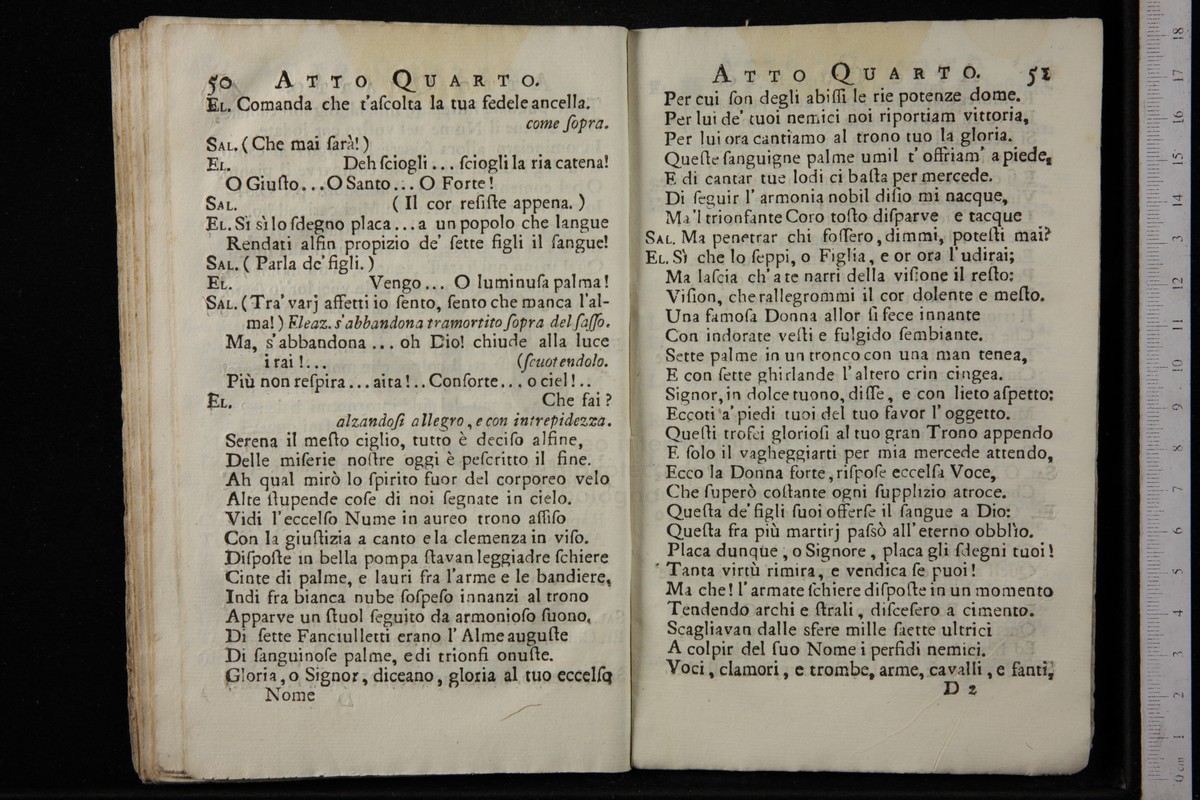 50 ATTO QUARTO.
EL. Comanda che t'aſcolta la tua fedele ancella.
come ſopra.
SAL. (Che mai ſarà!)
EL. Deh ſciogli... ſciogli la ria catena!
O Giuſto...O Santo... O Forte!
SAL. (Il cor reſiſte appena.)
EL. Sì sì lo ſdegno placa...a un popolo che langue
Rendati alfin propizio de' ſette figli il ſangue!
SAL. (Parla de' figli.)
EL. Vengo... O luminuſa palma!
SAL. (Tra' varj affetti io ſento, ſento che manca l'al-
ma!) Eleaz. s'abbandona tramortito ſopra del ſaſſo.
Ma, s'abbandona ... oh Dio! chiude alla luce
i rai!... (ſcuotendolo.
Più non reſpira... aita!.. Conforte... o ciel!..
EL. Che fai?
alzandoſi allegro, e con intrepidezza.
Serena il meſto ciglio, tutto è deciſo alfine,
Delle miſerie noſtre oggi è peſcritto il fine.
Ah qual mirò lo ſpirito fuor del corporeo velo
Alte ſtupende coſe di noi ſegnate in cielo.
Vidi l'eccelſo Nume in aureo trono aſſiſo
Con la giuſtizia a canto e la clemenza in viſo.
Diſpoſte in bella pompa ſtavan leggiadre ſchiere
Cinte di palme, e lauri fra l'arme e le bandiere,
Indi fra bianca nube ſoſpeſo innanzi al trono
Apparve un ſtuol ſeguito da armonioſo ſuono,
Di ſette Fanciulletti erano l'Alme auguſte
Di ſanguinoſe palme, e di trionfi onuſte.
Gloria, o Signor, diceano, gloria al tuo eccelſo
Nome
ATTO QUARTO. 51
Per cui ſon degli abiſſi le rie potenze dome.
Per lui de' tuoi nemici noi riportiam vittoria,
Per lui ora cantiamo al trono tuo la gloria.
Queſte ſanguigne palme umil t' offriam' a piede,
E di cantar tue lodi ci baſta per mercede.
Di ſeguir l' armonia nobil diſio mi nacque,
Ma 'l trionfante Coro toſto diſparve e tacque
SAL. Ma penetrar chi foſſero, dimmi, poteſti mai?
EL. Sì che lo ſeppi, o Figlia, e or ora l'udirai;
Ma laſcia ch'a te narri della viſione il reſto:
Viſion, che rallegrommi il cor dolente e meſto.
Una famoſa Donna allor ſi fece innante
Con indorate veſti e fulgido ſembiante.
Sette palme in un tronco con una man tenea,
E con ſette ghirlande l'altero crin cingea.
Signor, in dolce tuono, diſſe, e con lieto aſpetto:
Eccoti a' piedi tuoi del tuo favor l'oggetto.
Queſti trofei glorioſi al tuo gran Trono appendo
E ſolo il vagheggiarti per mia mercede attendo,
Ecco la Donna forte, riſpoſe eccelſa Voce,
Che ſuperò coſtante ogni ſupplizio atroce.
Queſta de' figli ſuoi offerſe il ſangue a Dio:
Queſta fra più martirj paſsò all'eterno obblìo.
Placa dunque, o Signore, placa gli ſdegni tuoi!
Tanta virtù rimira, e vendica ſe puoi!
Ma che! l'armate ſchiere diſpoſte in un momento
Tendendo archi e ſtrali, diſceſero a cimento.
Scagliavan dalle sfere mille ſaette ultrici
A colpir del ſuo Nome i perfidi nemici.
Voci, clamori, e trombe, arme, cavalli, e fanti,
D 2
18
17
16
15
14
13
12
11
10
9
8
7
6
5
4
3
2
1
0 cm